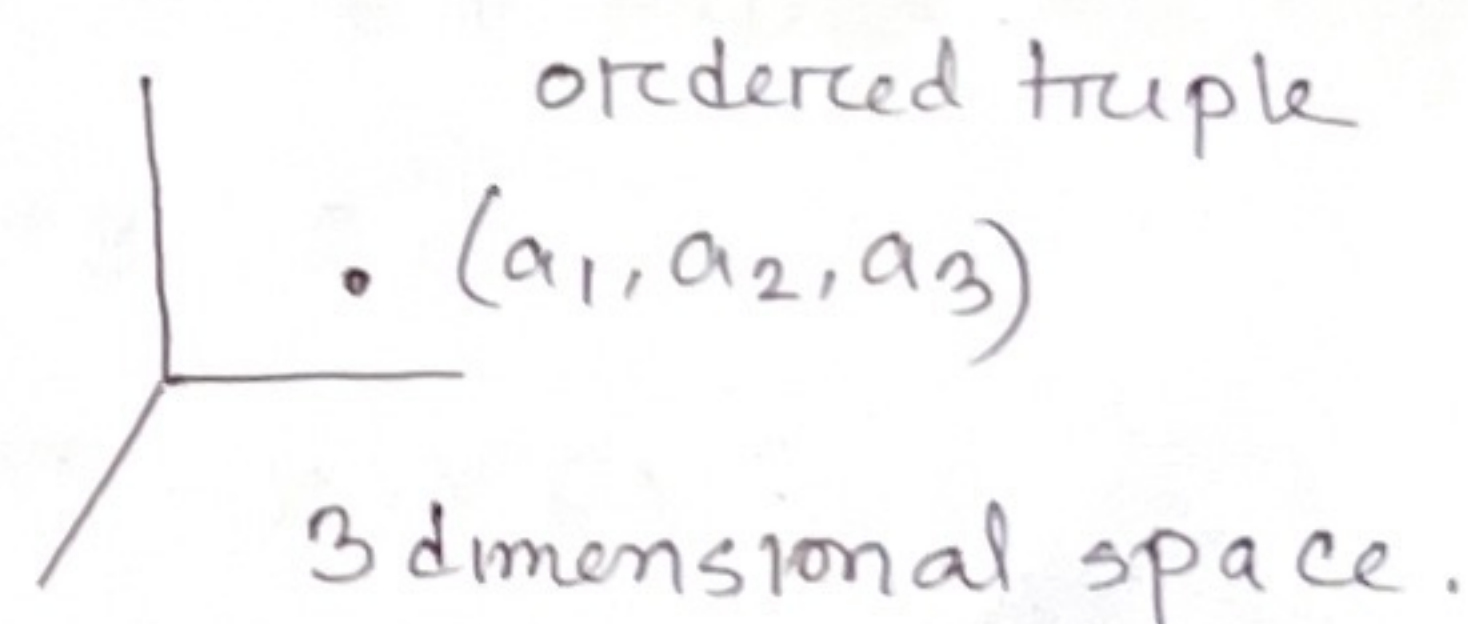 ordered truple
(a1, a2, a3)
3 dimensional space.